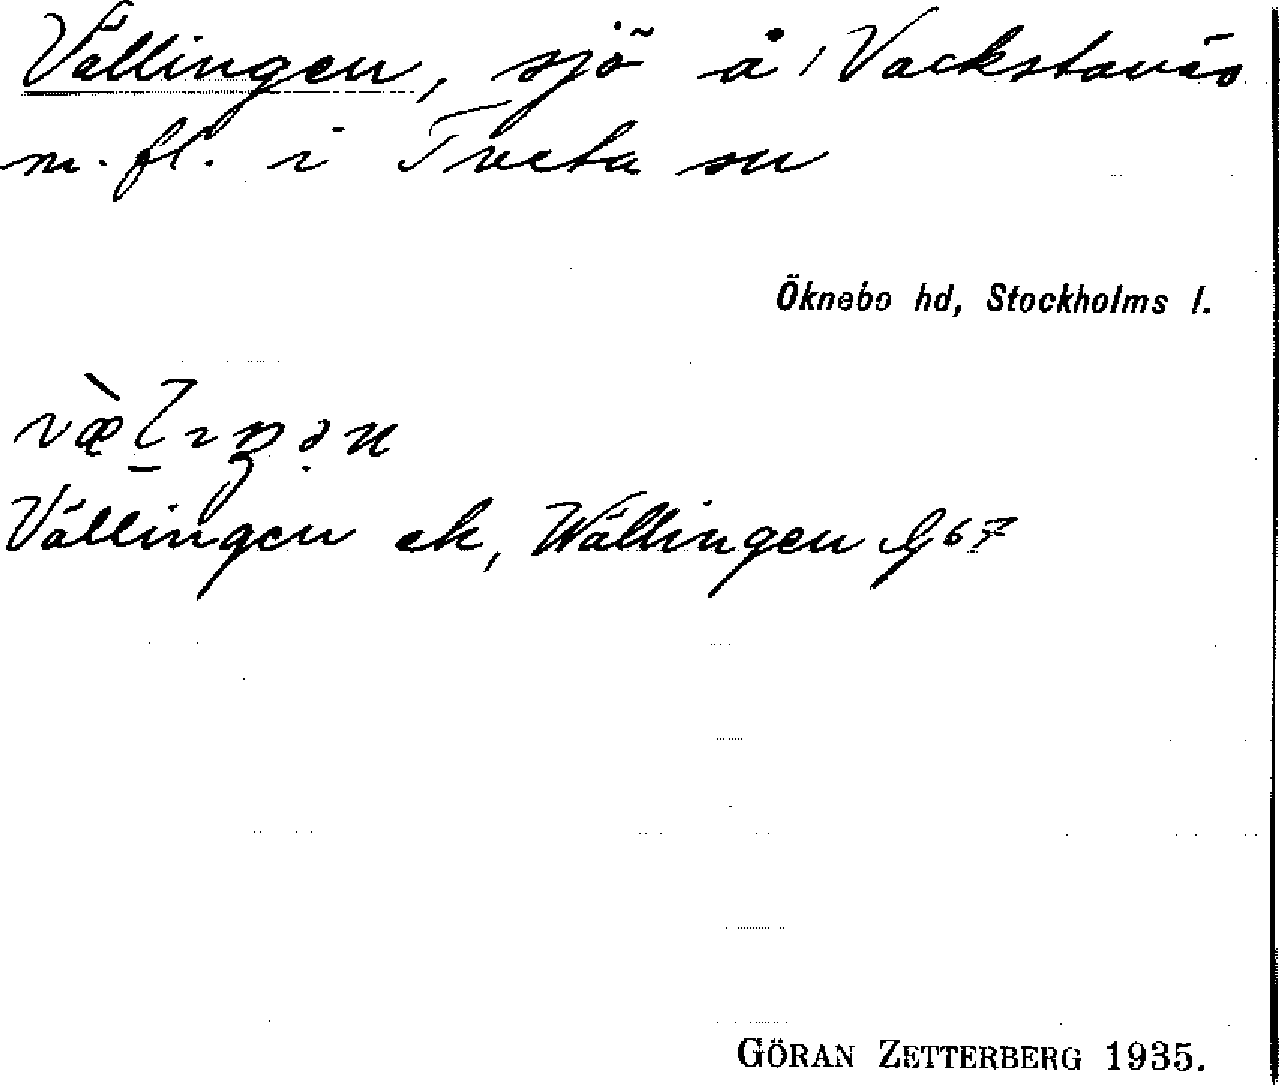 Vällingen, sjö å Vackstanäs
m. fl. i Tveta sn
Öknebo hd, Stockholms l.
Vällingen ek, Wällingen G 67
GÖRAN ZETTERBERG 1935.